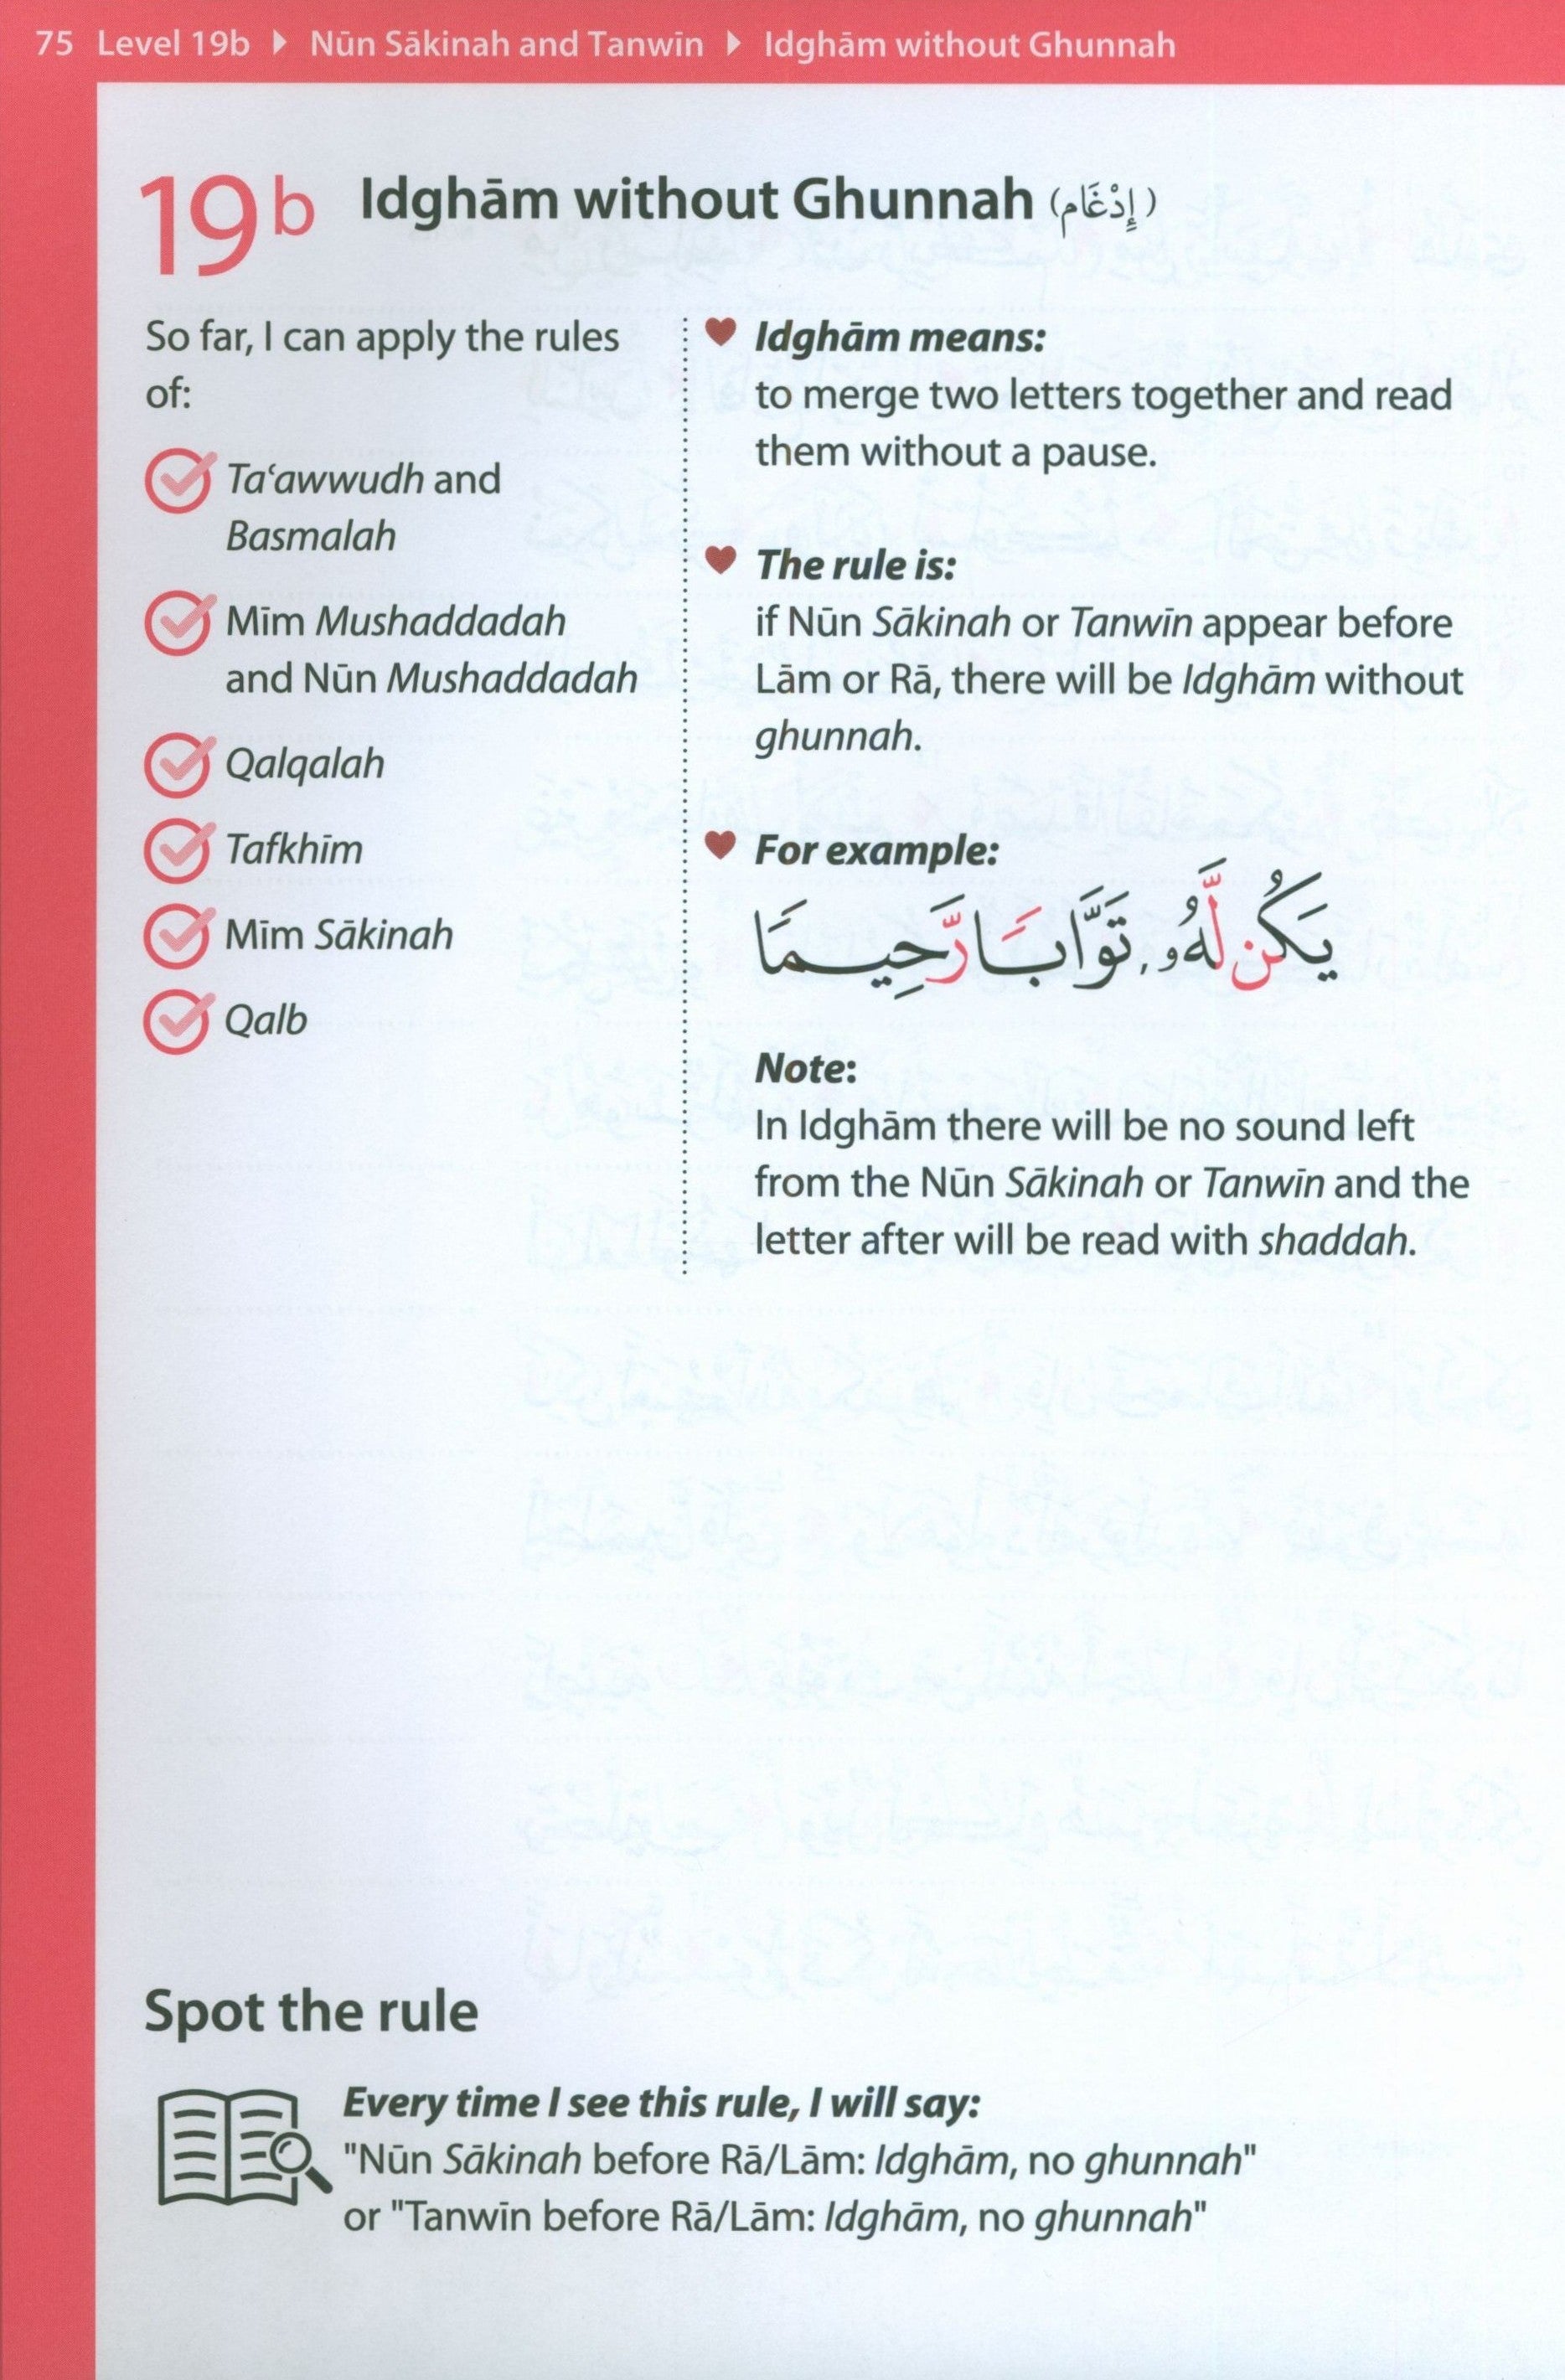 75 Level 19b ▸ Nūn Sākinah and Tanwīn ▸ Idghām without Ghunnah
19b Idghām without Ghunnah (إِدْغَام)
So far, I can apply the rules
of:
Taʿawwudh and
Basmalah
Mīm Mushaddadah
and Nūn Mushaddadah
Qalqalah
Tafkhīm
Mīm Sākinah
Qalb
Idghām means:
to merge two letters together and read
them without a pause.
The rule is:
if Nūn Sākinah or Tanwīn appear before
Lām or Rā, there will be Idghām without
ghunnah.
For example:
يَكُن لَّهُۥ, تَوَّابَٗا رَّحِيمَٗا
Note:
In Idghām there will be no sound left
from the Nūn Sākinah or Tanwīn and the
letter after will be read with shaddah.
Spot the rule
Every time I see this rule, I will say:
"Nūn Sākinah before Rā/Lām: Idghām, no ghunnah"
or "Tanwīn before Rā/Lām: Idghām, no ghunnah"